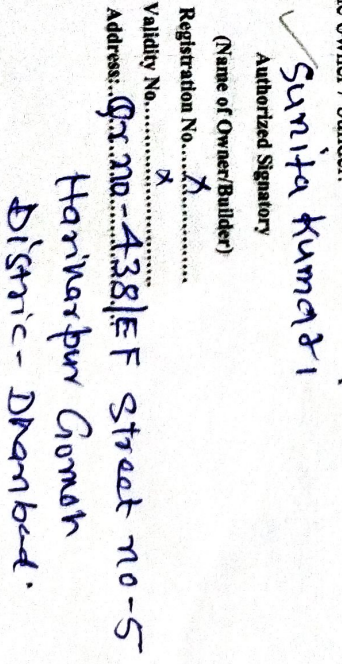 Sunita Kumari
Authorized Signatory
(Name of Owner/Builder)
Registration No.....X................
Validity No.........x................
Address:..Qr.no-438/EF Street no-5
Hariharpur Gomoh
Distric- Dhanbad.